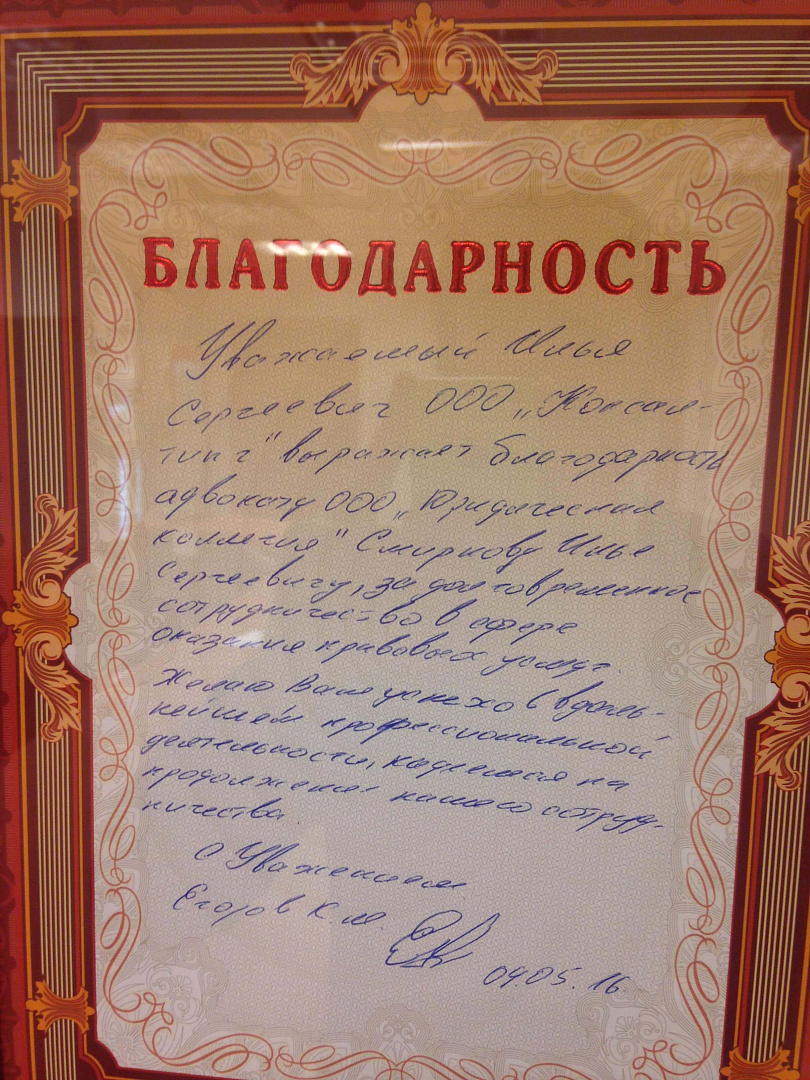 БЛАГОДАРНОСТЬ
Уважаемый Илья
Сергеевич ООО „Консал-
тинг" выражает благодарность
адвокату ООО „Юридическая
коллегия" Смирнову Илье
Сергеевичу, за долговременное
сотрудничество в сфере
оказания правовых услуг.
Желаю Вам успехов в даль-
нейшей профессиональной
деятельности, надеемся на
продолжение нашего сотруд-
ничества.
С Уважением
Егоров К.М.
04.05.16